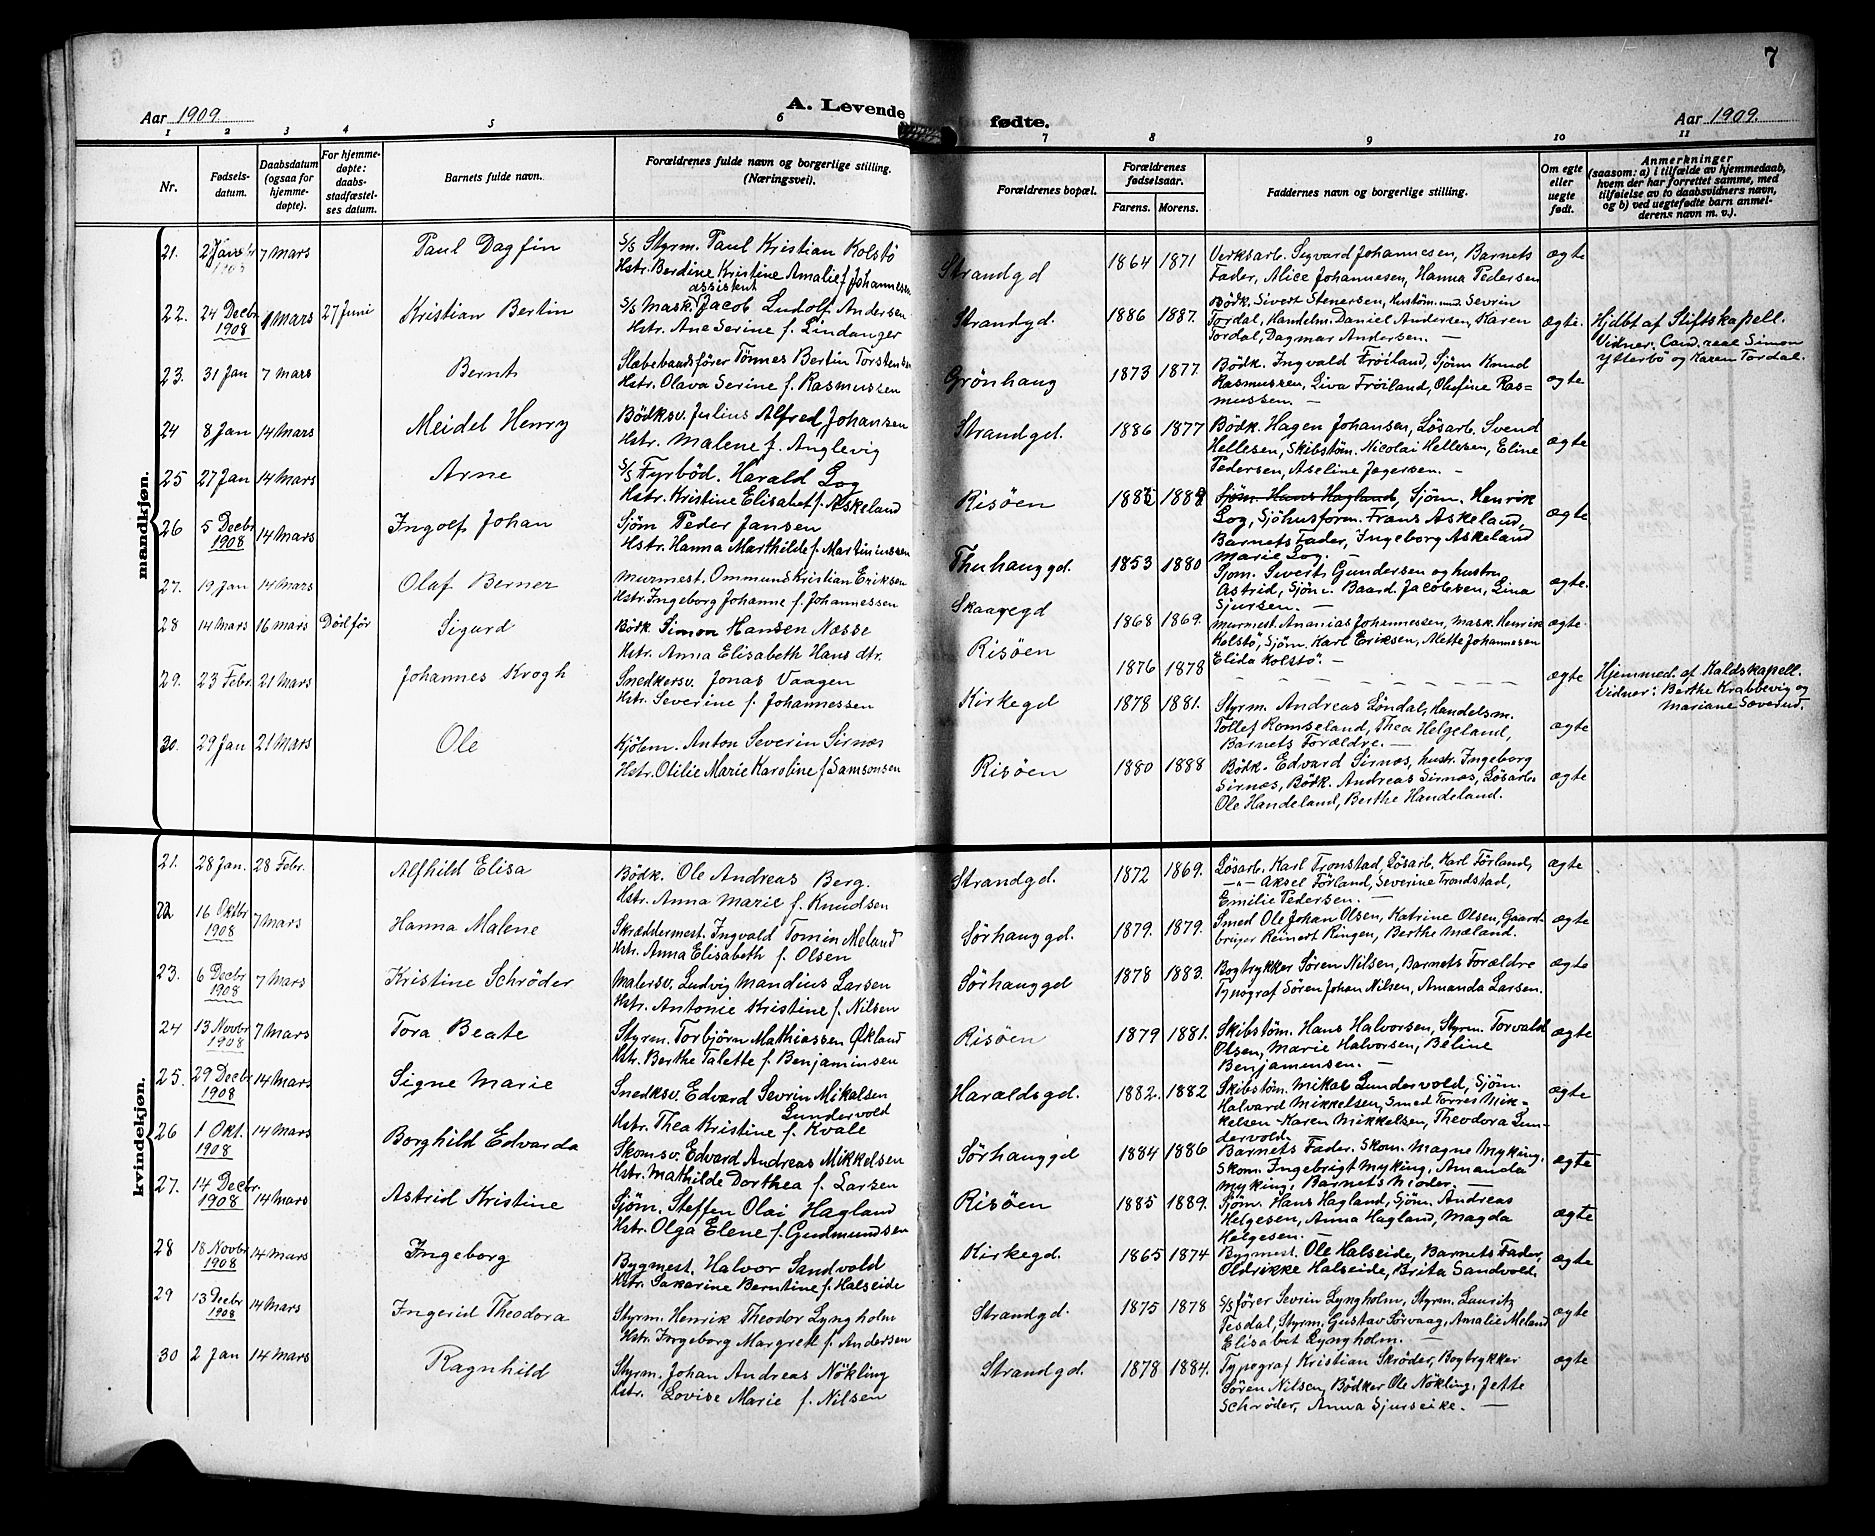 7
Aar 1909.
A. Levende
fødte.
Aar 1909.
1 2 3 4 5 6 7 8 9 10 11
Nr.
Fødsels-
datum.
Daabsdatum
(ogsaa for
hjemme-
døpte).
For hjemme-
døpte:
daabs-
stadfæstel-
ses datum.
Barnets fulde navn.
Forældrenes fulde navn og borgerlige stilling.
(Næringsvei).
Forældrenes bopæl.
Forældrenes
fødselsaar.
Farens. Morens.
Faddernes navn og borgerlige stilling.
Om egte
eller
uegte
født.
Anmerkninger
(saasom: a) i tilfælde av hjemmedaab,
hvem der har forrettet samme, med
tilføielse av to daabsvidners navn,
og b) ved uegtefødte barn anmel-
derens navn m. v.).
mandkjøn.
21. 7 Mars Paul Dagfin
S/S Styrm. Paul Kristian Kolstö
Hstr. Berdine Kristine Amalie f Johannessen
Strandgd 1864 1871
Verksarb. Sigvard Johannesen, Barnets
Fader, Alice Johannesen, Hanna Pedersen
ægte
22. 24 Decbr 1908 1 Mars 27 Juni Kristian Bertin
assistent
S/S Mask. Jacob Ludolf Andersen
Hstr. Ane Serine f. Lindanger
Strandgd. 1886 1887.
Bödk. Sivert Stenersen, Sevrin
Tordal, Handelm. Daniel Andersen, Karen
Tordal, Dagmar Andersen. —
ægte.
Hjdbt af Stiftskapell.
Vidner: Cand. real Simon
Ytterbö og Karen Tordal.
23. 31 Jan 7 Mars Bernt
Slæbebaadsfører Tönnes Bertin Torstensen
Hstr. Olava Serine f. Rasmussen
Grönhaug 1873 1877
Bödk. Ingvald Fröiland, Sjöm Knud
Rasmussen, Liva Fröiland, Olufine Ras-
mussen. —
ægte
24 8 Jan 14 Mars Meidel Henry
Bödksv. Julius Alfred Johansen
Hstr. Malene f. Anglevig
Strandgd. 1886 1877
Bödk. Hagen Johansen, Lösarb. Svend
Hellesen, Skibstöm. Nicolai Hellesen, Eline
Pedersen, Aseline Jegersen. —
ægte
25 27 Jan 14 Mars Arne
S/S Fyrböd. Harald Log
Hstr. Kristine Elisabet f. Askeland
Risöen
Sjöm. Hans Hagland, Sjöm. Henrik
Log, Sjöhusform. Frans Askeland,
Barnets Fader, Ingeborg Askeland
Marie Log. —
ægte
26 5 Decbr 1908 14 Mars Ingolf Johan
Sjöm Peder Jansen
Hstr. Hanna Marthilde f. Martininssen
Thuhauggd. 1853 1880
Sjöm. Sivert Gundersen og hustru
Astrid, Sjöm. Baard Jacobsen, Lina
Sjursen. —
ægte.
27. 19 Jan 14 Mars Olaf Berner
Murmest. Ommund Kristian Eriksen
Hstr. Ingeborg Johanne f. Johannessen
Skaaregd 1868 1869.
Murmest. Ananias Johannessen, Mask. Henrik
Kolstö, Sjöm. Karl Eriksen, Mette Johannesen
Elida Kolstö. —
ægte.
28 14 Mars 16 Mars Död för Sigurd
Bödk. Simon Hansen Næsse
Hstr. Anna Elisabeth Hans dtr.
Risöen 1876 1878
— — — — — — — —
ægte
Hjemmed. af Kaldskapell.
Vidner: Berthe Krabbevig og
Mariane Söverud.
29. 23 Febr. 21 Mars Johannes Krogh
Snedkersv. Jonas Vaagen
Hstr. Severine f. Johannessen
Kirkegd 1878 1881.
Styrm. Andreas Löndal, Handelsm.
Tollef Romseland, Thea Helgeland,
Barnets Forældre. —
ægte
30. 29 Jan 21 Mars Ole
Kjölem. Anton Severin Sirnæs
Hstr. Otilie Marie Karoline f Samsonsen
Risöen 1880 1888
Bödk. Edvard Sirnæs, hustr. Ingeborg
Sirnæs, Bödk. Andreas Sirnæs, Lösarb.
Ole Handeland, Berthe Handeland.
ægte
kvindekjøn.
21. 28 Jan. 28 Febr. Alfhild Elisa
Bödk. Ole Andreas Berg.
Hstr. Anna Marie f. Knudsen
Strandgd. 1872 1869.
Lösarb. Karl Tronstad, Lösarb. Karl Förland,
—"— Aksel Förland, Severine Trondstad,
Emilie Pedersen. —
ægte
22 16 Oktbr 1908 7 Mars Hanna Malene
Skræddermest. Ingvald Tomin Meland
Hstr. Anna Elisabeth f. Olsen
Sörhauggd. 1879. 1879.
Smed Ole Johan Olsen, Katrine Olsen, Gaard-
bruger Reinert Ringen, Berthe Mæland.
ægte
23. 6 Decbr 1908 7 Mars Kristine Schröder
Malersv. Ludvig Mandius Larsen
Hstr. Antonie Kristine f. Nilsen
Sörhauggd 1878 1883.
Bogtrykker Sören Nilsen, Barnets Forældre
Typograf Sören Johan Nilsen, Amanda Larsen.
ægte
24 13 Novbr 1908 7 Mars Tora Beate
Styrm. Torbjörn Mathiassen Økland
Hstr. Berthe Talette f. Benjaminsen
Risöen 1879 1881.
Skibstöm. Hans Halvorsen, Styrm. Torvald
Olsen, Marie Halvorsen, Beline
Benjamensen. —
ægte
25. 29 Decbr 1908 14 Mars Signe Marie
Snedksv. Edvard Sevrin Mikalsen
Lundervold
Hstr. Thea Kristine f. Kvale
Haraldsgd. 1882. 1882
Skibstöm. Mikal Lundervold, Sjöm.
Halvard Mikkelsen, Smed Torres Mik-
kelsen Karen Mikkelsen, Theodora Lun-
dervold.
ægte
26 1 Okt. 1908 14 Mars Borghild Edvarda
Skomsv. Edvard Andreas Mikkelsen
Hstr. Mathilde Dorthea f. Larsen
Sörhauggd 1884 1886
Barnets Fader. Skom. Magne Myking,
Skom. Ingebrigt Myking, Amanda
Myking, Barnets Moder. —
ægte
27. 14 Decbr. 1908 14 Mars Astrid Kristine
Sjöm. Steffen Olai Hagland
Hstr. Olga Elene f. Gudmundsen
Risöen 1885 1889.
Sjöm. Hans Hagland, Sjöm. Andreas
Helgesen, Anna Hagland, Magda
Helgesen. —
ægte
28 18 Novbr 1908 14 Mars Ingeborg
Bygmest. Halvor Sandvold
Hstr. Sakarine Berntine f. Halseide
Kirkegd. 1865 1874
Bygmest. Ole Halseide, Barnets Fader,
Oldrikke Halseide, Brita Sandvold.
ægte
29 13 Decbr 1908 14 Mars Ingerid Theodora
Styrm. Henrik Theodor Lyngholm
Hstr. Ingeborg Margrett f. Andersen
Strandgd. 1875 1878
S/S förer Sevrin Lyngholm, Styrm. Lauritz
Tesdal, Styrm. Gustav Sörvaag, Amalie Meland
Elisabet Lyngholm. —
ægte
30 2 Jan 14 Mars Ragnhild
Styrm. Johan Andreas Nökling
Hstr. Lovise Marie f. Nilsen
Strandgd. 1878 1884.
Typegraf Kristian Skröder, Bogtrykker
Sören Nilsen, Bödker Ole Nökling, Jette
Schröder, Anna Sjurseike. —
ægte